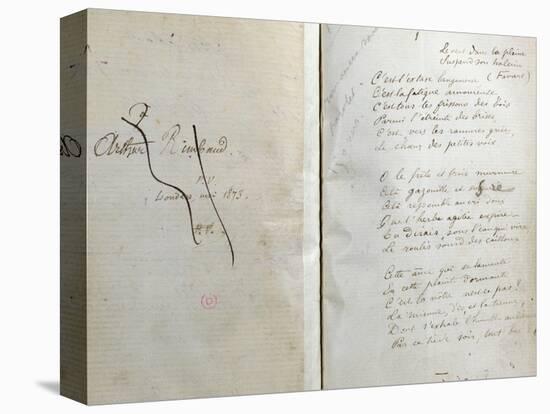 à
Arthur Rimbaud.
P.V.
Londres, mai 1873.
P.V.
1
Le vent dans la plaine
Suspend son haleine
(Favart)
C'est l'extase langoureuse
C'est la fatigue amoureuse
C'est tous les frissons des bois
Parmi l'étreinte des brises,
C'est, vers les ramures grises,
Le chœur des petites voix
O le frêle et frais murmure
Cela gazouille et
Cela ressemble au cri doux
Que l'herbe agitée expire
Tu dirais, sous l'eau qui vire
Le roulis sourd des cailloux
Cette âme qui se lamente
En cette plainte dormante
C'est la nôtre n'est ce pas?
La mienne, dis, et la tienne,
Dont s'exhale l'humble antienne
Par ce tiède soir, tout bas